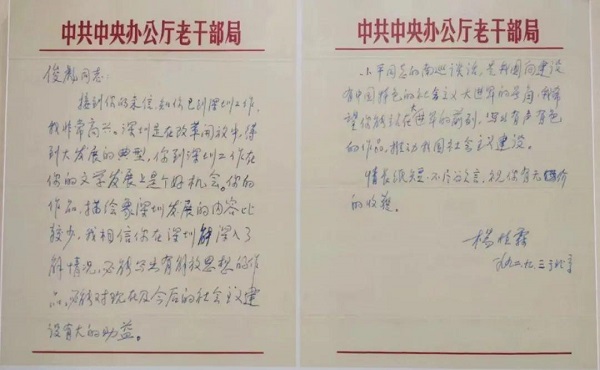 中共中央办公厅老干部局
俊彪同志：
接到你的来信，知你已到深圳工作，
我非常高兴。深圳是在改革开放中，得
到大发展的典型，你到深圳工作在
你的文学发展上是个好机会。你的
作品，描绘象深圳发展的内容比
较少，我相信你在深圳能深入了
解情况，必能写出有解放思想的作
品，必能对现在及今后的社会主义建
设有大的助益。
中共中央办公厅老干部局
小平同志的南巡谈话，是我国向建设
有中国特色的社会主义大进军的号角，我希
望你能站在大进军的前列，写出有声有色
的作品，推动我国社会主义建设。
情长纸短，不尽欲言，祝你有无
的收获。
杨植霖
一九九二、九、三于北京